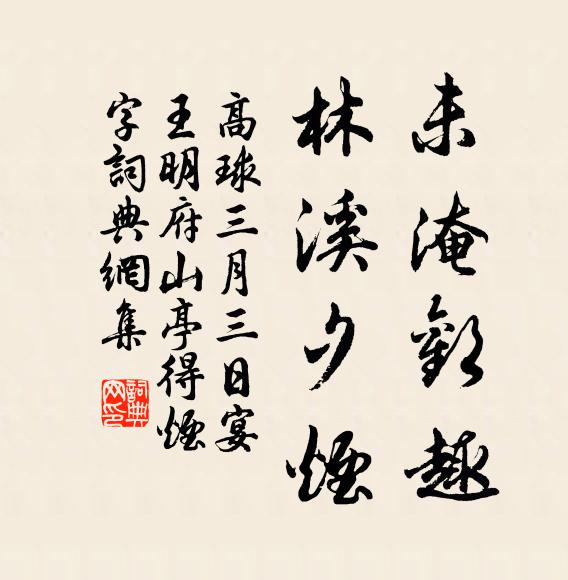 未淹歡趣
林溪夕煙
高球三月三日宴
王明府山亭得煙
字詞典網集
詞典
网印